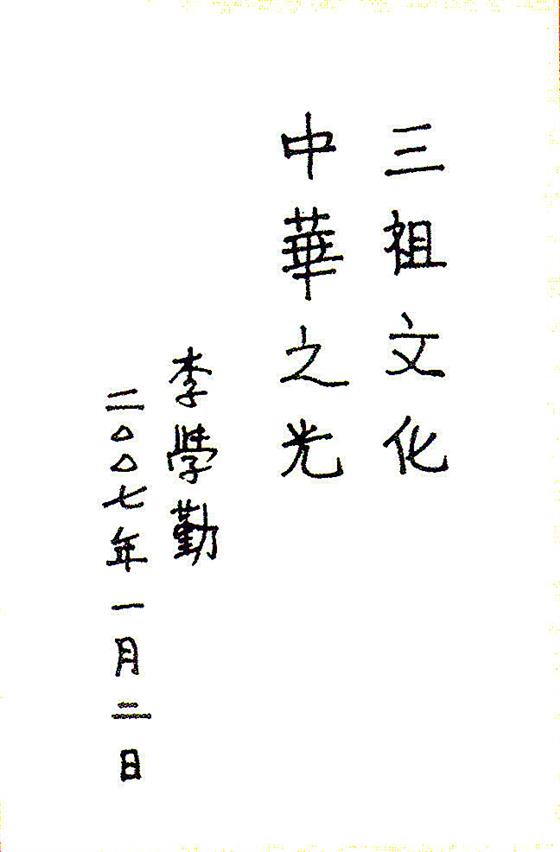 三祖文化
中華之光
李學勤
二〇〇七年一月二日